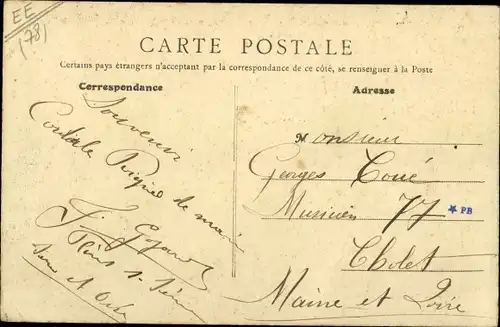 EE
(78)
CARTE POSTALE
Certains pays étrangers n'acceptant par la correspondance de ce côté, se renseigner à la Poste
Correspondance
Souvenir
Cordiale Poignée de main
Seine et Oise
Adresse
Monsieur
Georges Coué
Musicien 77
★ PB
Cholet
Maine et Loire